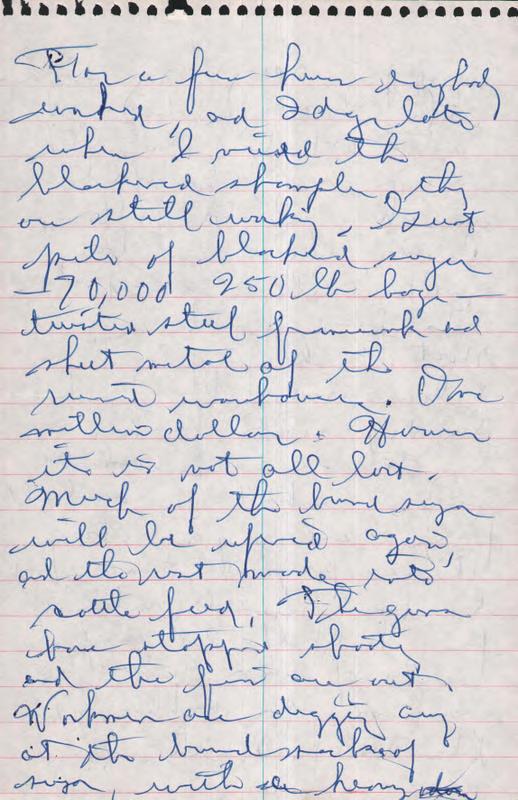 For a few hours everybody
worked, and 2 days later
when I visited the
blackened shambles they
are still working. Giant
piles of blackened sugar
— 70,000 250 lb bags —
twisted steel framework and
sheet metal of the
ruined warehouse. One
million dollars. However
it is not all lost.
Much of the burned sugar
will be refined again,
and the rest made into
cattle feed. The guns
have stopped shooting
and the fires are out
Workmen are digging away
at the burned sacks of
sugar, with heavy